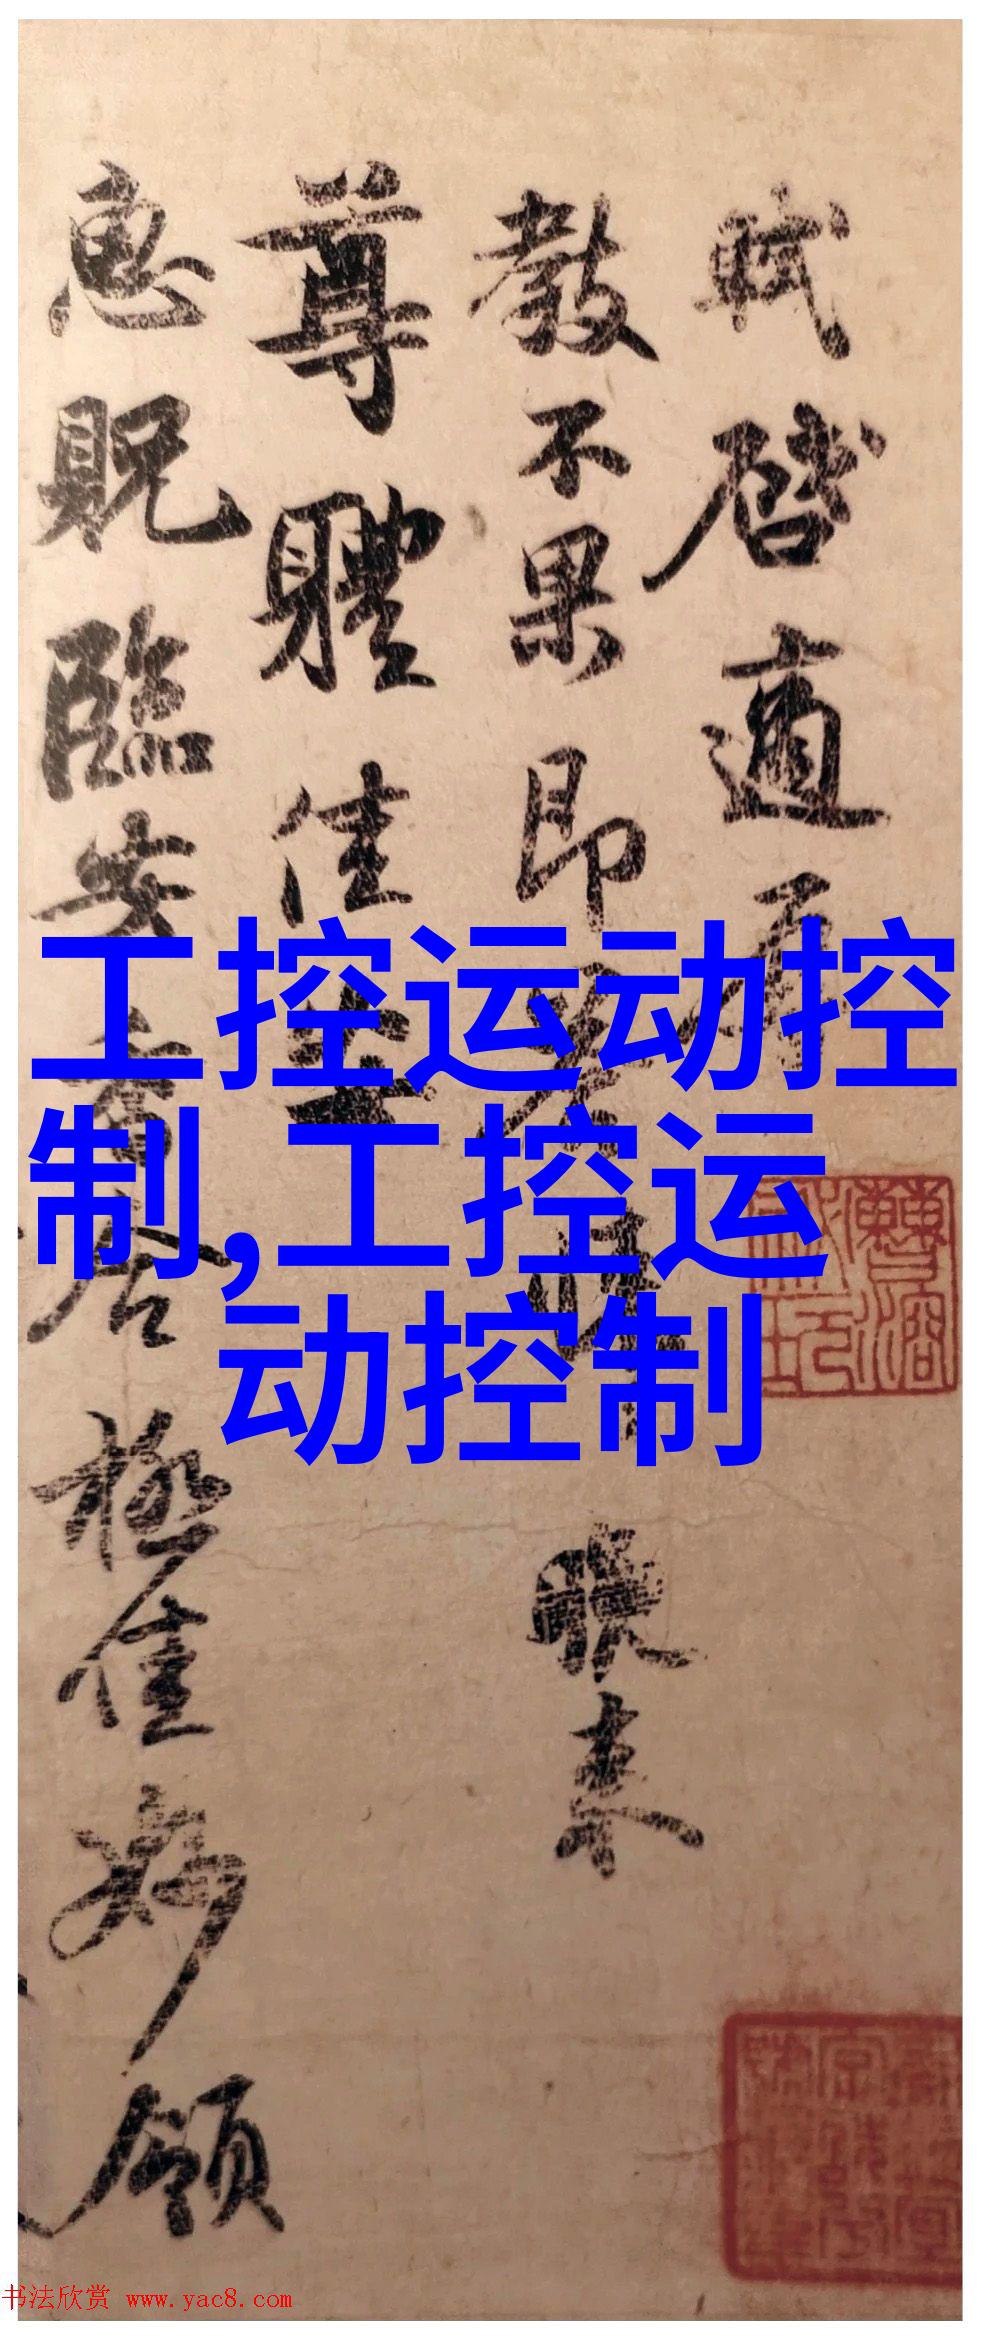 軾啓適辱
教不果即
晚来
尊體佳
惠貺臨安
舍極佳妙領
工控运动控
制,工控运
动控制
书法欣赏 www.yac8.com